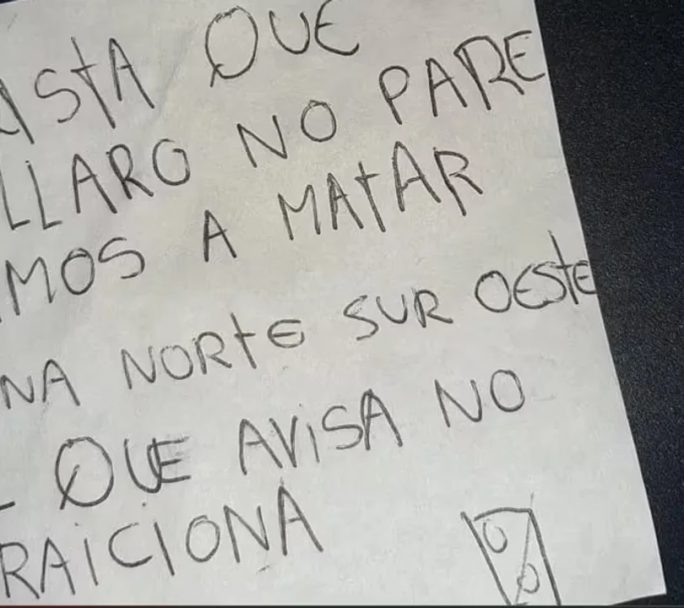 ASTA QUE
LLARO NO PARE
MOS A MATAR
NA NORTE SUR OESTE
QUE AVISA NO
RAICIONA